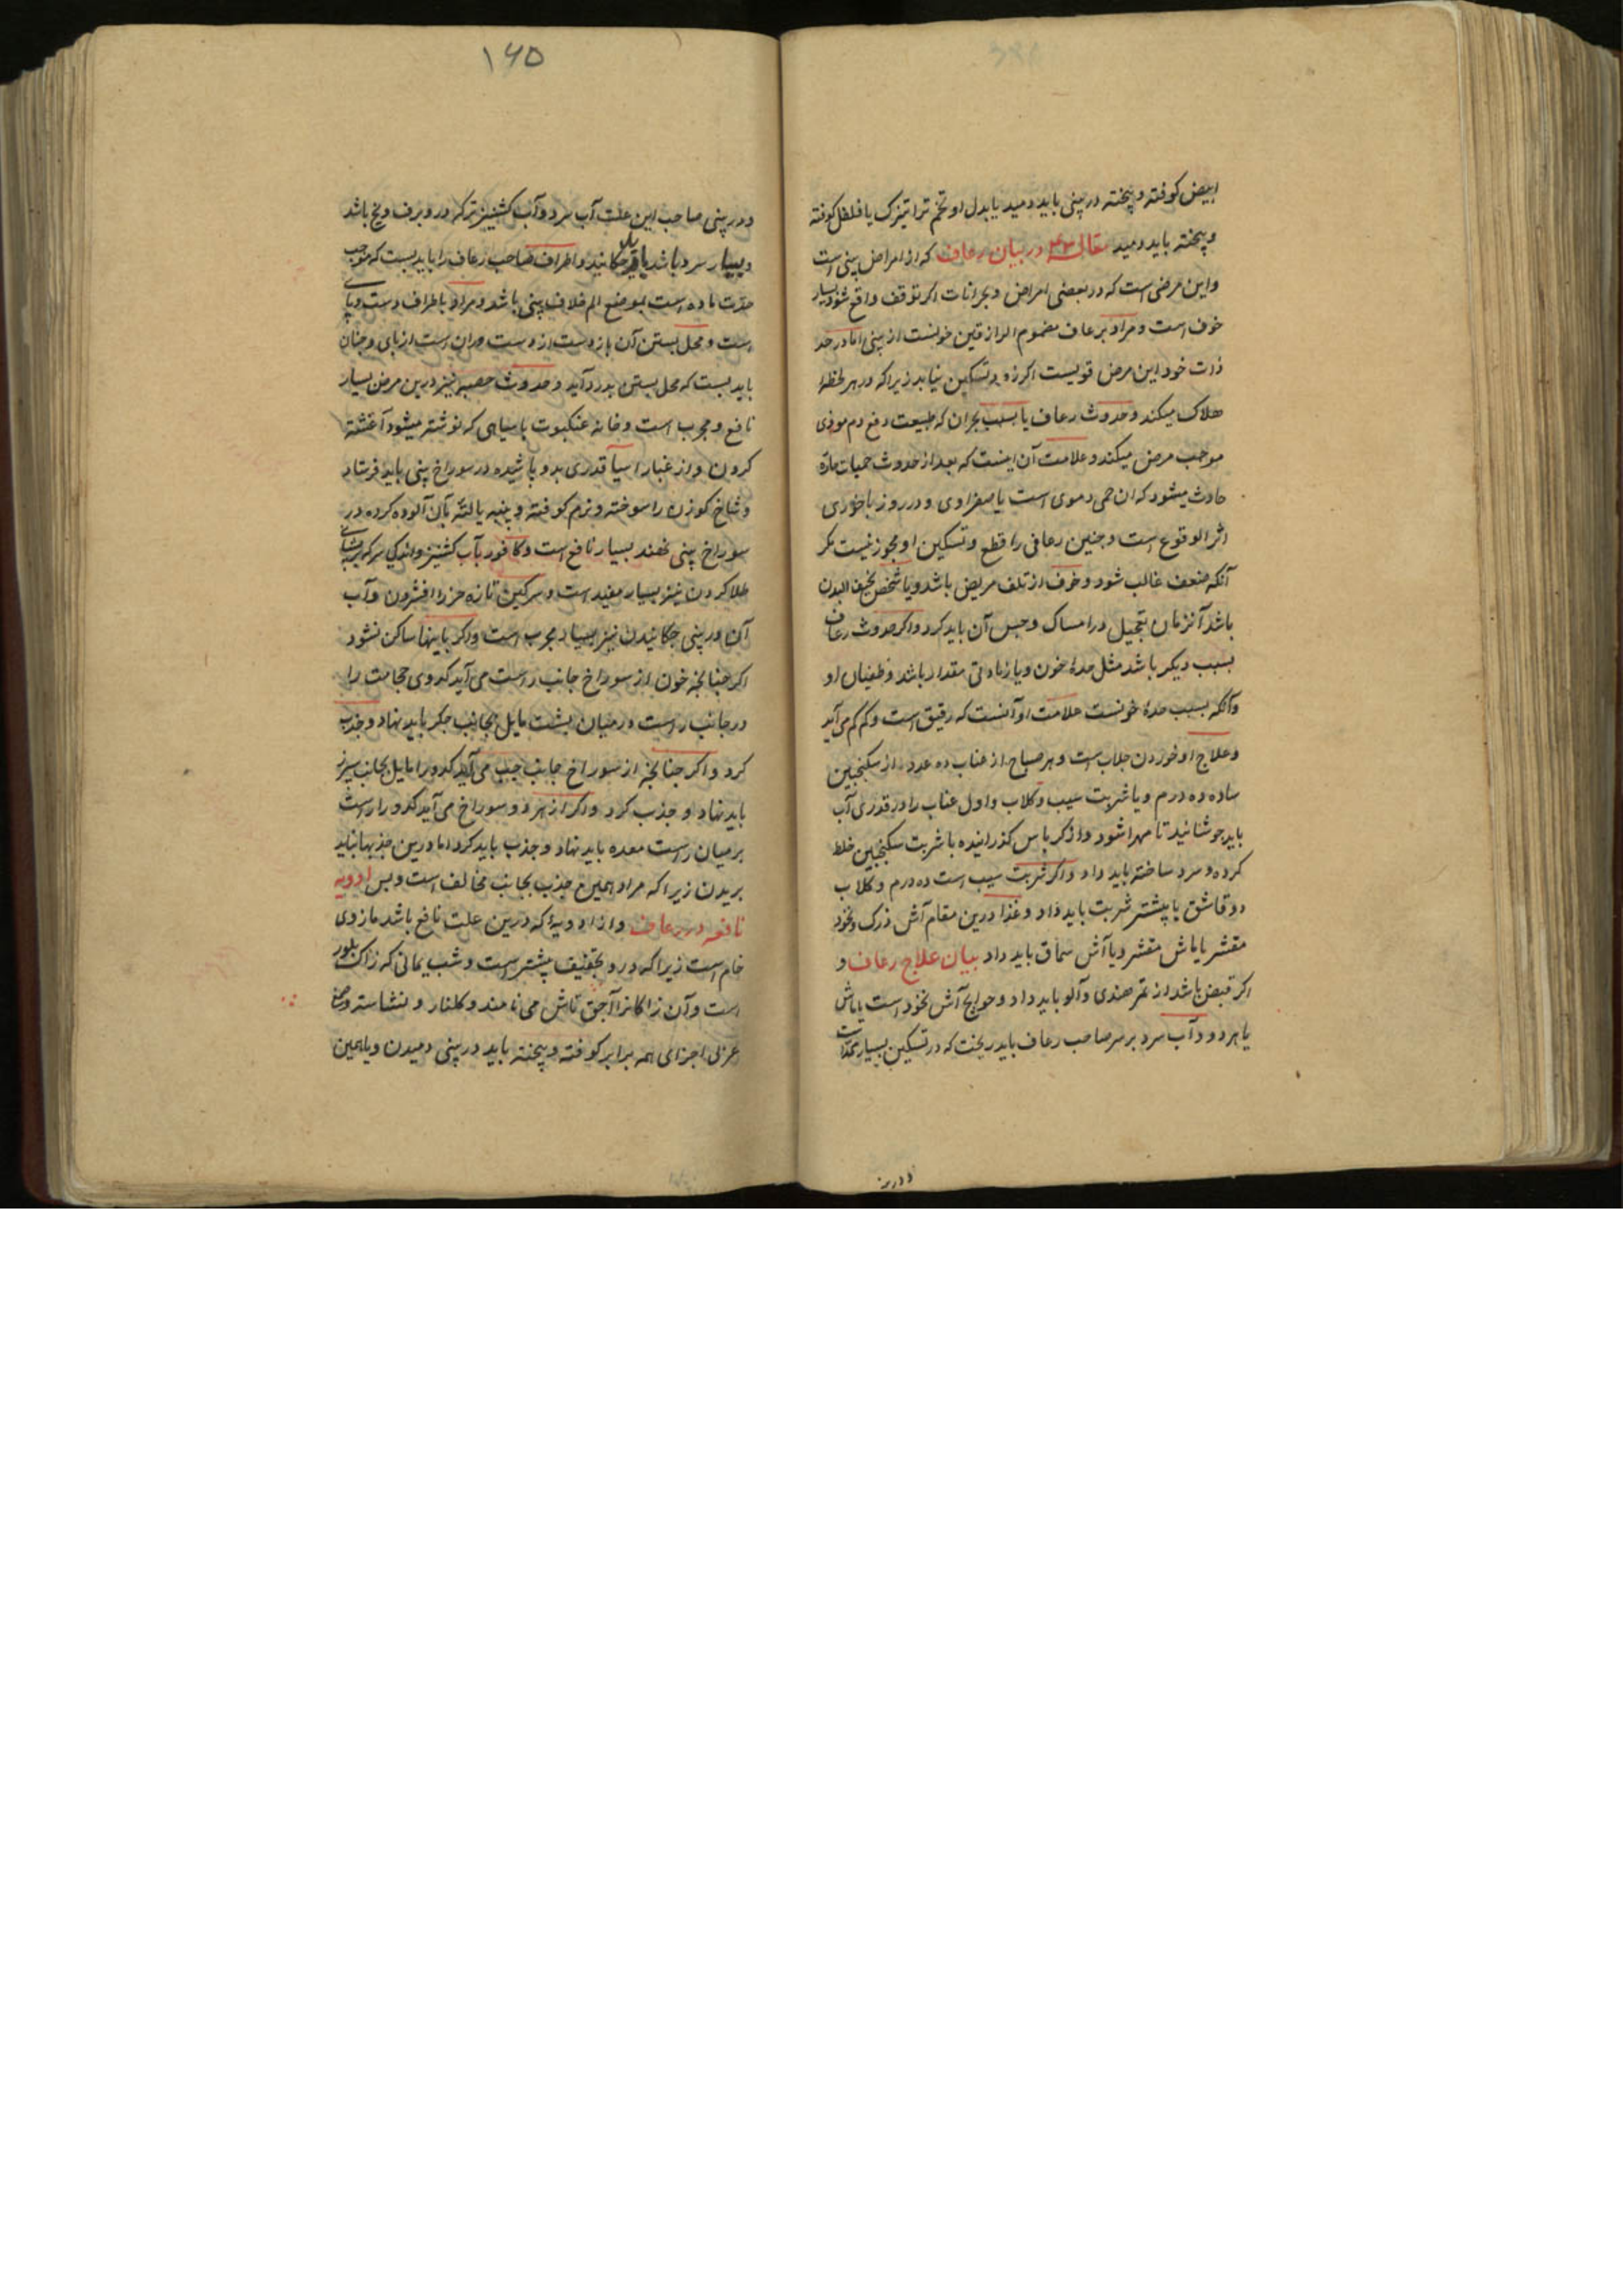 ابیض کوفته و پخته در بینی باید دمید یا بدل او تخم تراتیزک یا فلفل کوفته
و پخته باید دمید مقاله ۴۳ در بیان رعاف که از امراض بینی است
و این مرضی است که در بعضی امراض و بحرانات اکر توقف واقع شود بسیار
خوف است و مراد برعاف مضموم الرا رفتن خونست از بینی اما در حد
ذات خود این مرض قویست اکر زود تسکین نیابد زیرا که در هر لحظه
هلاک میکند و حدوث رعاف یا بسبب بحران که طبیعت دفع دم موذی
موجب مرض میکند و علامت آن اینست که بعد از حدوث حمیات حاره
حادث میشود که ان حمی دموی است یا صفراوی و در روز باخوری
اثر الوقوع است و جنین رعافی را قطع و تسکین او مجوز نیست مکر
آنکه ضعف غالب شود و خوف از تلف مریض باشد و یا شخص نحیف البدن
باشد آنزمان تعجیل در امساک و حبس آن باید کرد و اکر حدوث رعاف
بسبب دیکر باشد مثل حدة خون و یا زیادتی مقدار باشد و طغیان او
و آنکه بسبب حدة خونست علامت او آنست که رقیق است و کم کم می آید
و علاج او خوردن جلاب است و هر صباح از عناب ده عدد از سکنجبین
ساده ده درم و یا شربت سیب و کلاب و اول عناب را در قدری آب
باید جوشانید تا مهرا شود و از کرباس کذرانیده با شربت سکنجبین خلط
کرده و سرد ساخته باید داد و اکر شربت سیب است ده درم و کلاب
دو قاشق یا پیشتر شربت باید داد و غذا درین مقام آش زرک و نخود
مقشر یا ماش مقشر و یا آش سماق باید داد بیان علاج رعاف و
اکر قبض باشد از تمر هندی و آلو باید داد و حوایج آش نخود است یا ماش
یا هر دو و آب سرد بر سر صاحب رعاف باید ریخت که در تسکین بسیار
و در بینی
۱۶۵
و در بینی صاحب این علت آب سرد و آب کشنیز تر که در و برف و یخ باشد
و بسیار سرد باشد باید جکانید و اطراف صاحب رعاف را باید بست که موجب
حدت ماده است بموضع الم خلاف بینی باشد و مراد باطراف دست و پا
است و محل بستن آن بازوست از دست و ران است از پای و جنان
باید بست که محل بستن بدرد آید و حدوث حصبه نیز درین مرض بسیار
نافع و مجرب است و خانه عنکبوت با سیاهی که نوشته میشود آغشته
کردن و از غبار اسیا قدری بدو پاشیده در سوراخ بینی باید فرستاد
و شاخ کوزن را سوخته و نرم کوفته و پنبه یا لته بآن آلوده کرده در
سوراخ بینی نهند بسیار نافع است و کافور بآب کشنیز و اندکی سرکه
طلا کردن نیز بسیار مفید است و سرکین تازه خر را فشردن و آب
آن در بینی جکانیدن نیز بسیار مجرب است و اکر باینها ساکن نشود
اکر جنانچه خون از سوراخ جانب راست می آید کدوی حجامت را
در جانب راست در میان پشت مایل بجانب جکر باید نهاد و جذب
کرد و اکر جنانچه از سوراخ جانب جپ می آید کدو را مایل بجانب سپرز
باید نهاد و جذب کرد و اکر از هر دو سوراخ می آید کدو را راست
بر میان راست معده باید نهاد و جذب باید کرد اما درین جذبها نباید
بریدن زیرا که مراد همین جذب بجانب مخالف است و بس ادویه
نافعه در رعاف و از ادویه که درین علت نافع باشد مازوی
خام است زیرا که درو تجفیف پیشتر است و شب یمانی که زاک بلور
است و آن زاکانرا آجق تاش می نامند و کلنار و نشاسته و صمغ
عربی اجزای همه برابر کوفته و پخته باید در بینی دمیدن و یا همین